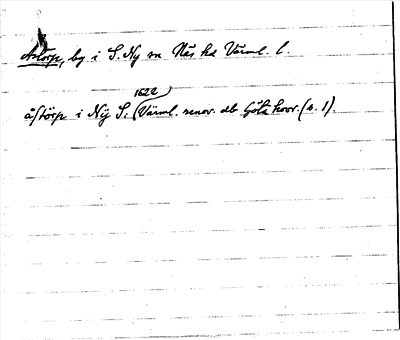 Åstorp, by i S. Ny sn Näs hd Värml. l.
1622
åstörp i Nÿ S. (Värml. renov. db Göta hovr. (n. 1).